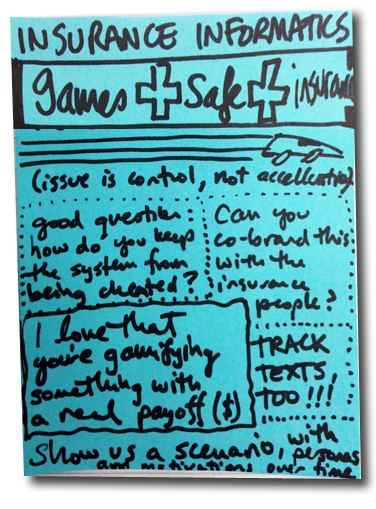 INSURANCE INFORMATICS
games + Safe + insurance
(issue is control, not accelleration)
good question:
how do you keep
the system from
being cheated?
Can you
co-brand this
with the
insurance
people?
I love that
you're gamifying
something with
a real payoff ($)
TRACK
TEXTS
TOO!!!
Show us a scenario, with personas
and motivations over time